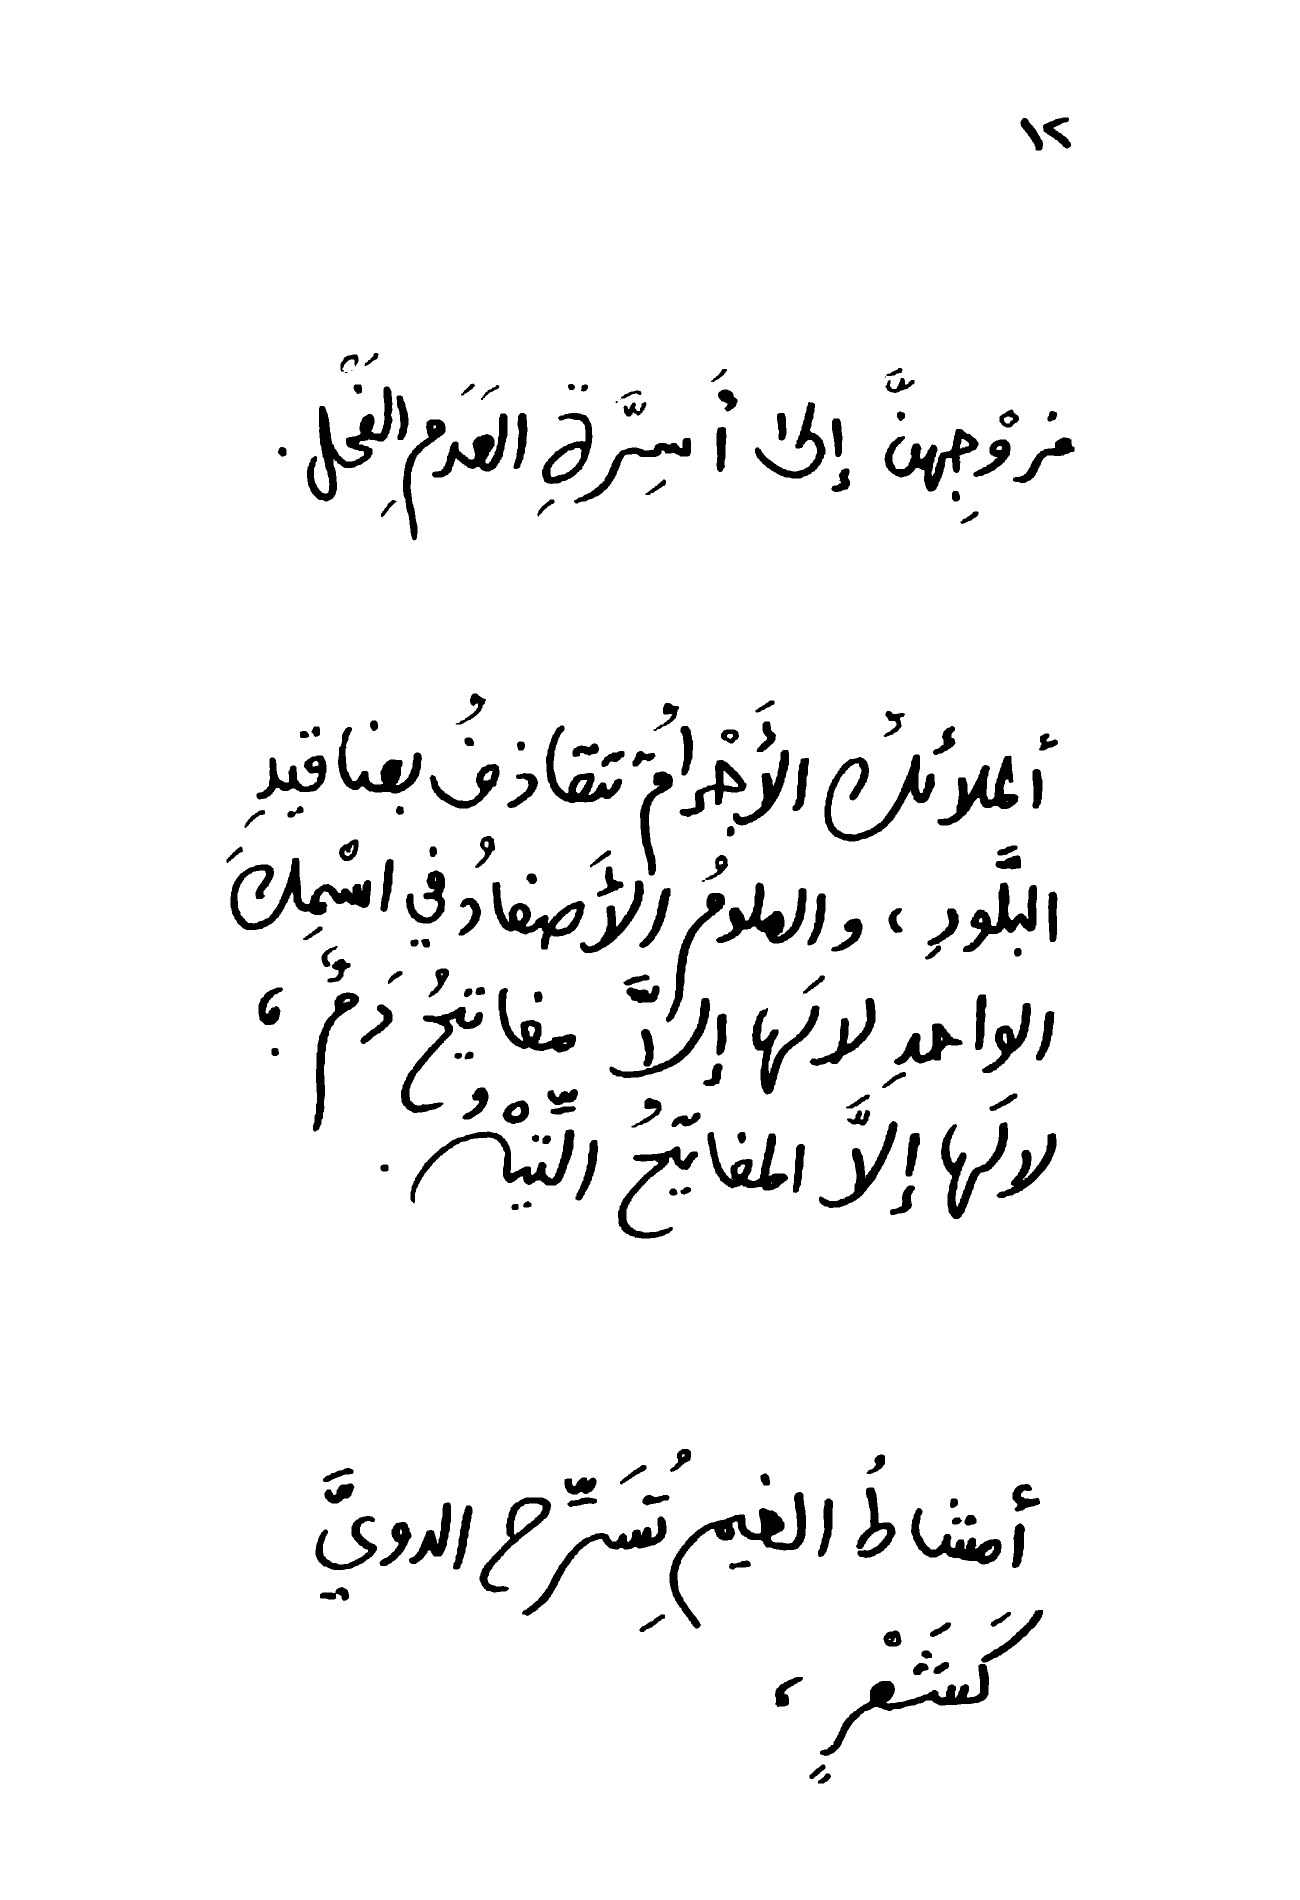 ١٢
خروْجِهنَّ إلى أَسِرَّةِ العَدَمِ الفَحْل.
ألملائكُ الأَجْرامُ تتقاذفُ بعناقيدِ
البَّلورِ، والعلومُ الأَصفادُ في اسْمِكَ
الواحدِ لا لَها إلاَّ مفاتيحُ دَمٌ؛
لا لَها إلاَّ المفاتيحُ التِّيْهُ.
أمشاطُ الغيمِ تُسَرِّح الدويَّ
كَشَعْرٍ،